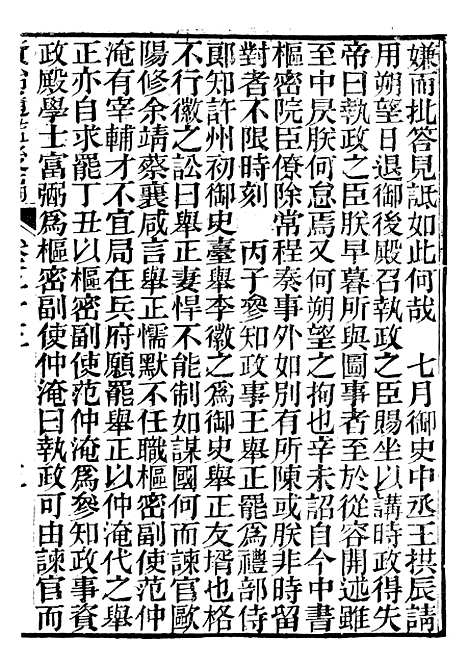 嫌而批答見詆如此何哉　七月御史中丞王拱辰請
用朔望日退御後殿召執政之臣賜坐以講時政得失
帝曰執政之臣朕早暮所與圖事者至於從容開述雖
至中昃朕何怠焉又何朔望之拘也辛未詔自今中書
樞密院臣僚除常程奏事外如別有所陳或朕非時留
對者不限時刻　丙子參知政事王舉正罷爲禮部侍
郎知許州初御史臺舉李徽之爲御史舉正友壻也格
不行徽之訟曰舉正妻悍不能制如謀國何而諫官歐
陽修余靖蔡襄咸言舉正懦默不任職樞密副使范仲
淹有宰輔才不宜局在兵府願罷舉正以仲淹代之舉
正亦自求罷丁丑以樞密副使范仲淹爲參知政事資
政殿學士富弼爲樞密副使仲淹曰執政可由諫官而